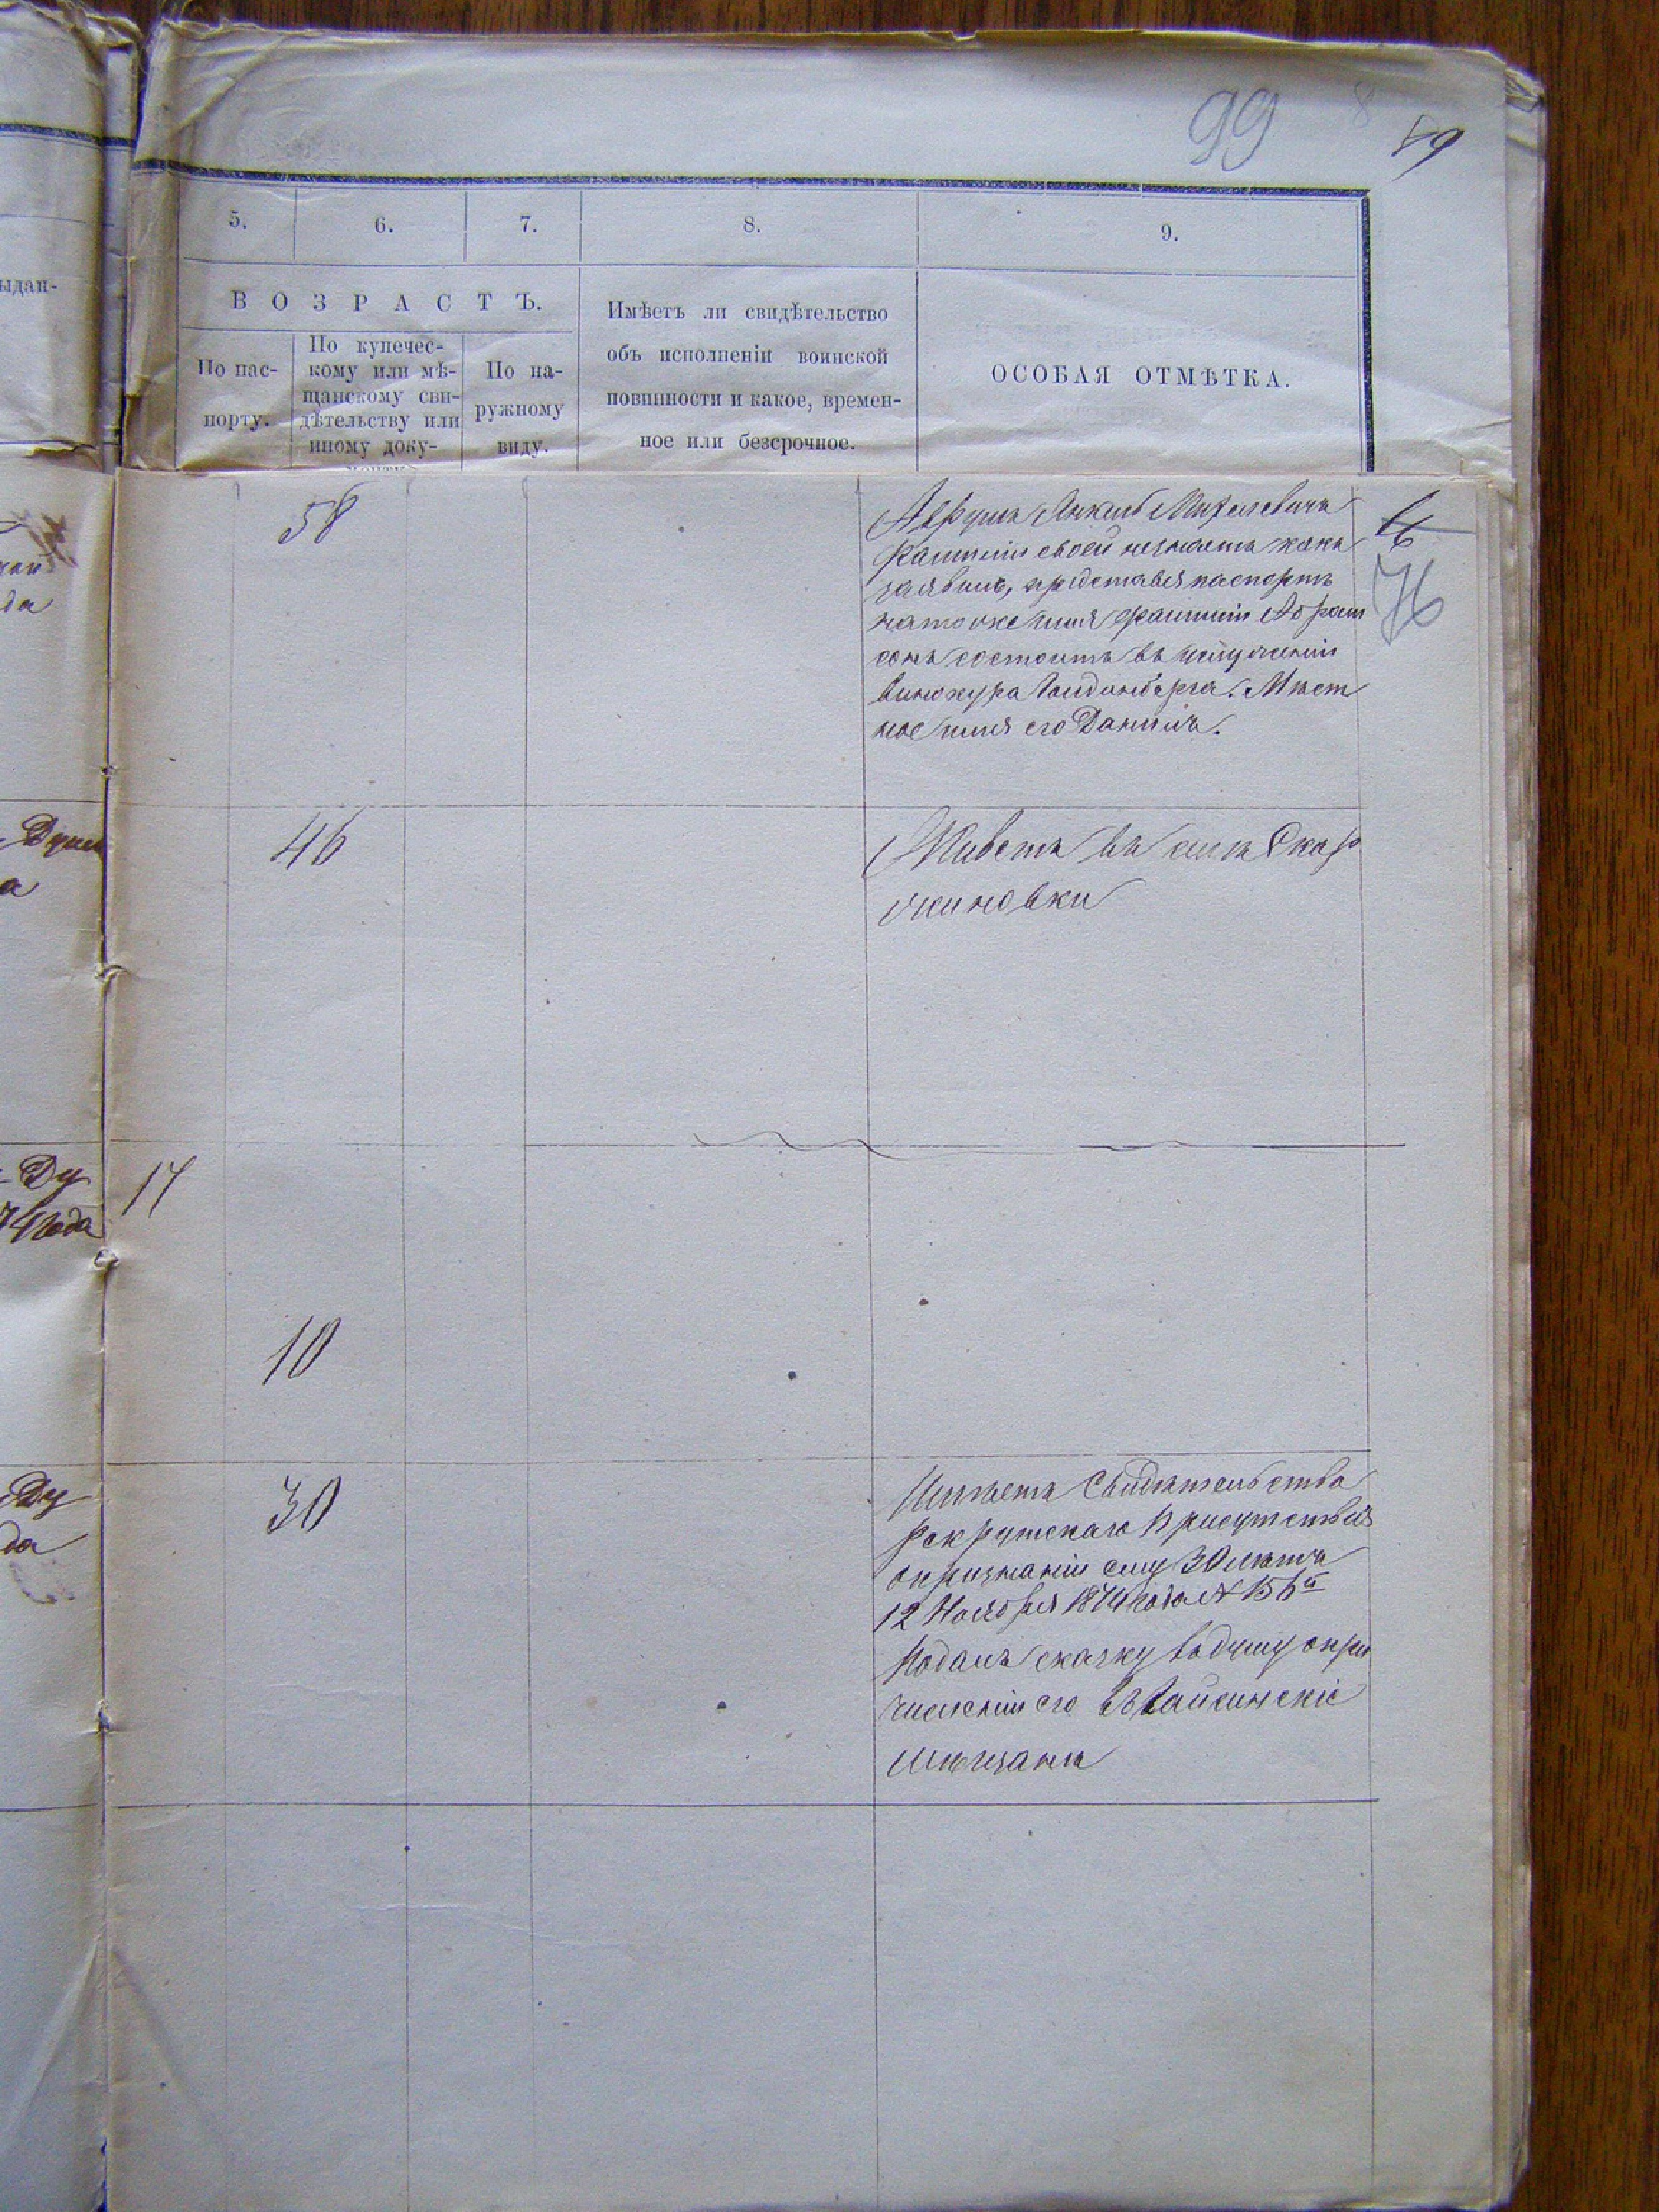 99
8
89
5. 6. 7. 8. 9.
ыдан-
ВОЗРАСТЪ.
По пас-
порту.
По купечес-
кому или мѣ-
щанскому сви-
дѣтельству или
иному доку-
По на-
ружному
виду.
Имѣетъ ли свидѣтельство
объ исполненіи воинской
повинности и какое, времен-
ное или безсрочное.
ОСОБАЯ ОТМѢТКА.
да
58
Аврумъ Янкель
фамиліи своей незнаетъ какъ
заявилъ, представя паспортъ
натоже имя фамиліи Абрам
сонъ состоитъ въ услуженіи
винокура Мѣст
ное имя его Данилъ.
76
Думы
а
46
Живетъ въ селѣ Скар
жиновки
Ду
года
17
10
Ду
да
30
Имѣетъ Свидѣтельство
рекрутскаго Присутствія
опризнаніи ему 30 лѣтъ
12 Ноября 1874 года № 156й
Подалъ сказку въ думу опри
численіи его въ Гайсинскіе
мѣщанѣ